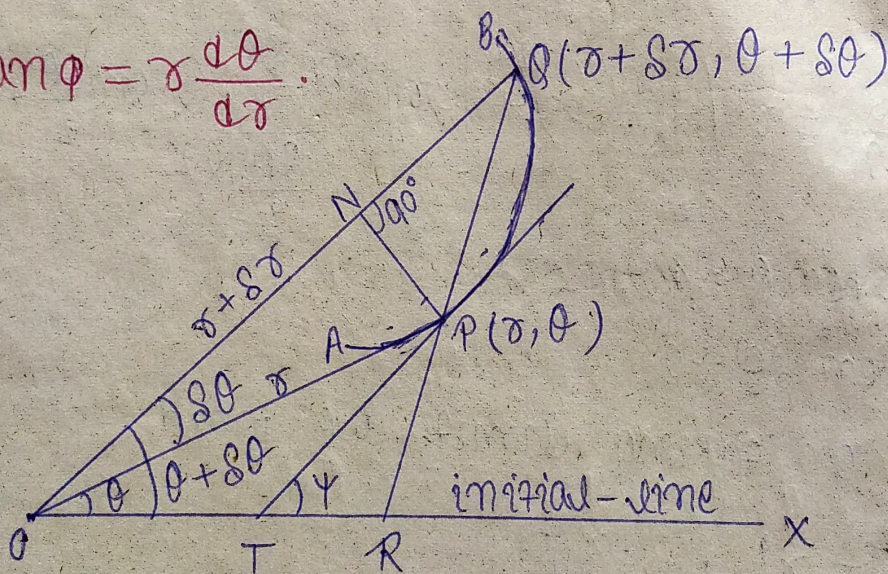 anφ = r dθ/dr.
B
Q(r+δr, θ+δθ)
N
90°
r+δr
A
P(r, θ)
δθ
r
θ
θ+δθ
ψ
initial-line
O
T
R
X